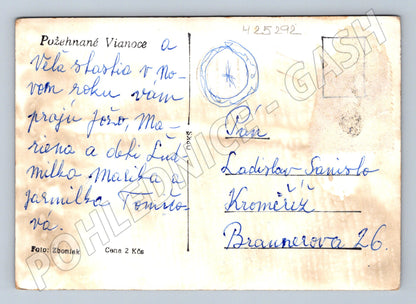 425292
Požehnané Vianoce a
Veľa šťastia v no-
vom roku vam
prajú Jožo, Ma-
riena a deti Lud-
milka Marika a
Jarmilka Tomičo-
vá.
Foto: Zbomiek Cena 2 Kčs
Pán
Ladislav Sanislo
Kroměříž
Braunerova 26.
POHLEDNICE - GASH